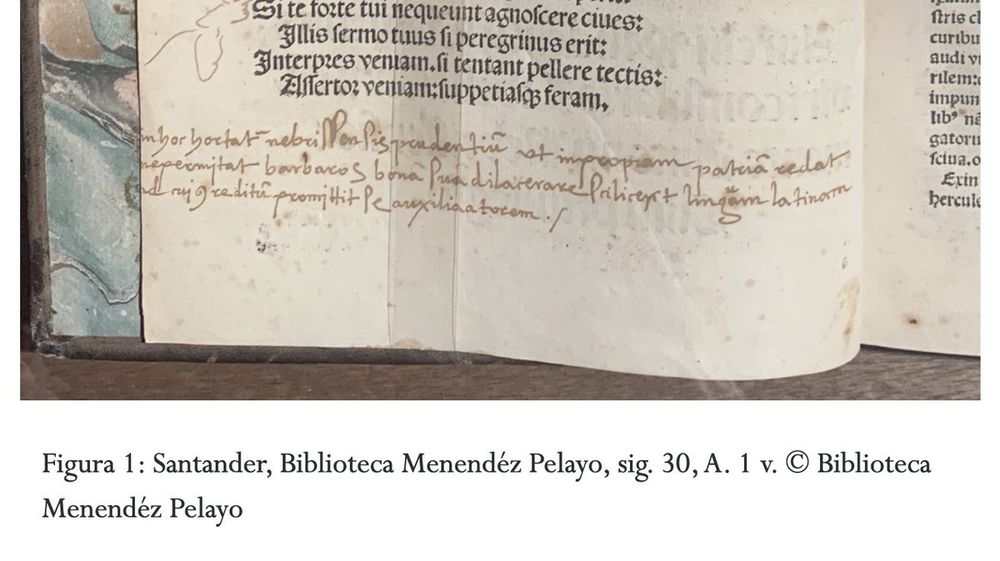 Si te forte tui nequeunt agnoscere ciues:
Illis sermo tuus si peregrinus erit:
Interpres veniam. si tentant pellere tectis:
Assertor veniam: suppetiasq; feram.
hortat nebrissensis prudentiũ vt in propiam patriã redat
nepermitat barbaros bona sua dilacerare lingãm latinam
reditũ promittit se auxiliaatorem ./
stris
curibu
audi
rilem:
impun
lib⁹
gatoru
sciua.
Exin
hercule
Figura 1: Santander, Biblioteca Menendéz Pelayo, sig. 30, A. 1 v. © Biblioteca
Menendéz Pelayo